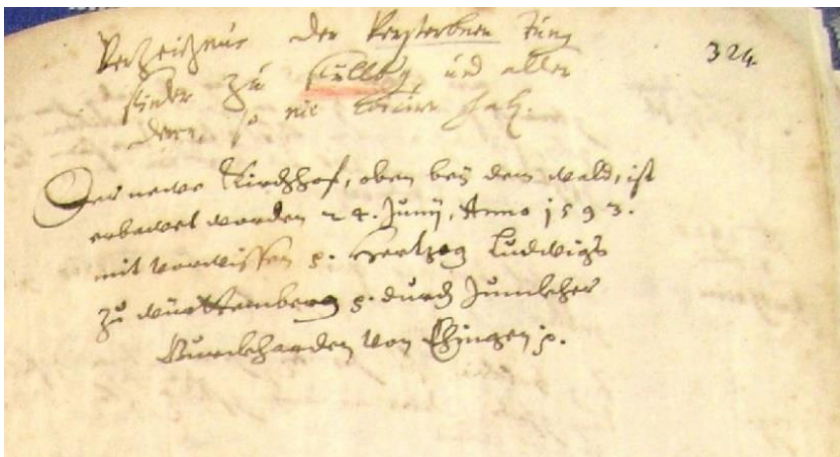 Verzeichnus der Verstorbnen Jung
324.
Kinder zu und aller
deren, so nie
Der newe Kirchhof, oben beÿ dem wald, ist
erbawet worden 24. Junij, Anno 1593.
mit vorwissen p. Hertzog Ludwigs
zu Württemberg p. durch Junckher
Burckharden von Ehingen p.